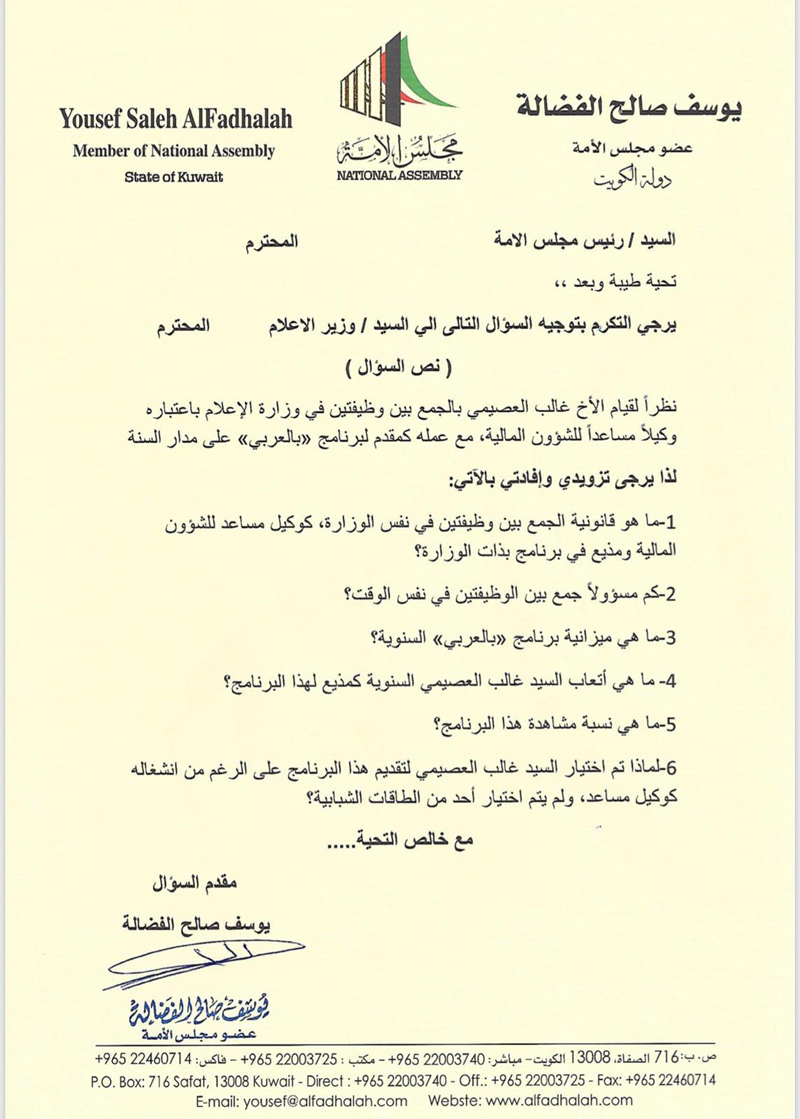 Yousef Saleh AlFadhalah
Member of National Assembly
State of Kuwait
مجلس الأمة
NATIONAL ASSEMBLY
يوسف صالح الفضالة
عضو مجلس الأمة
دولة الكويت
السيد / رئيس مجلس الامة المحترم
تحية طيبة وبعد ،،
يرجي التكرم بتوجيه السؤال التالى الي السيد / وزير الاعلام المحترم
( نص السؤال )
نظراً لقيام الأخ غالب العصيمي بالجمع بين وظيفتين في وزارة الإعلام باعتباره
وكيلاً مساعداً للشؤون المالية، مع عمله كمقدم لبرنامج «بالعربي» على مدار السنة
لذا يرجى تزويدي وإفادتي بالآتي:
1-ما هو قانونية الجمع بين وظيفتين في نفس الوزارة، كوكيل مساعد للشؤون
المالية ومذيع في برنامج بذات الوزارة؟
2-كم مسؤولاً جمع بين الوظيفتين في نفس الوقت؟
3-ما هي ميزانية برنامج «بالعربي» السنوية؟
4- ما هي أتعاب السيد غالب العصيمي السنوية كمذيع لهذا البرنامج؟
5-ما هي نسبة مشاهدة هذا البرنامج؟
6-لماذا تم اختيار السيد غالب العصيمي لتقديم هذا البرنامج على الرغم من انشغاله
كوكيل مساعد، ولم يتم اختيار أحد من الطاقات الشبابية؟
مع خالص التحية.....
مقدم السؤال
يوسف صالح الفضالة
يوسف صالح الفضالة
عضو مجلس الأمة
ص.ب: 716 الصفاة، 13008 الكويت- مباشر: 22003740 965+ - مكتب : 22003725 965+ - فاكس: 22460714 965+
P.O. Box: 716 Safat, 13008 Kuwait - Direct : +965 22003740 - Off.: +965 22003725 - Fax: +965 22460714
E-mail: yousef@alfadhalah.com Webste: www.alfadhalah.com